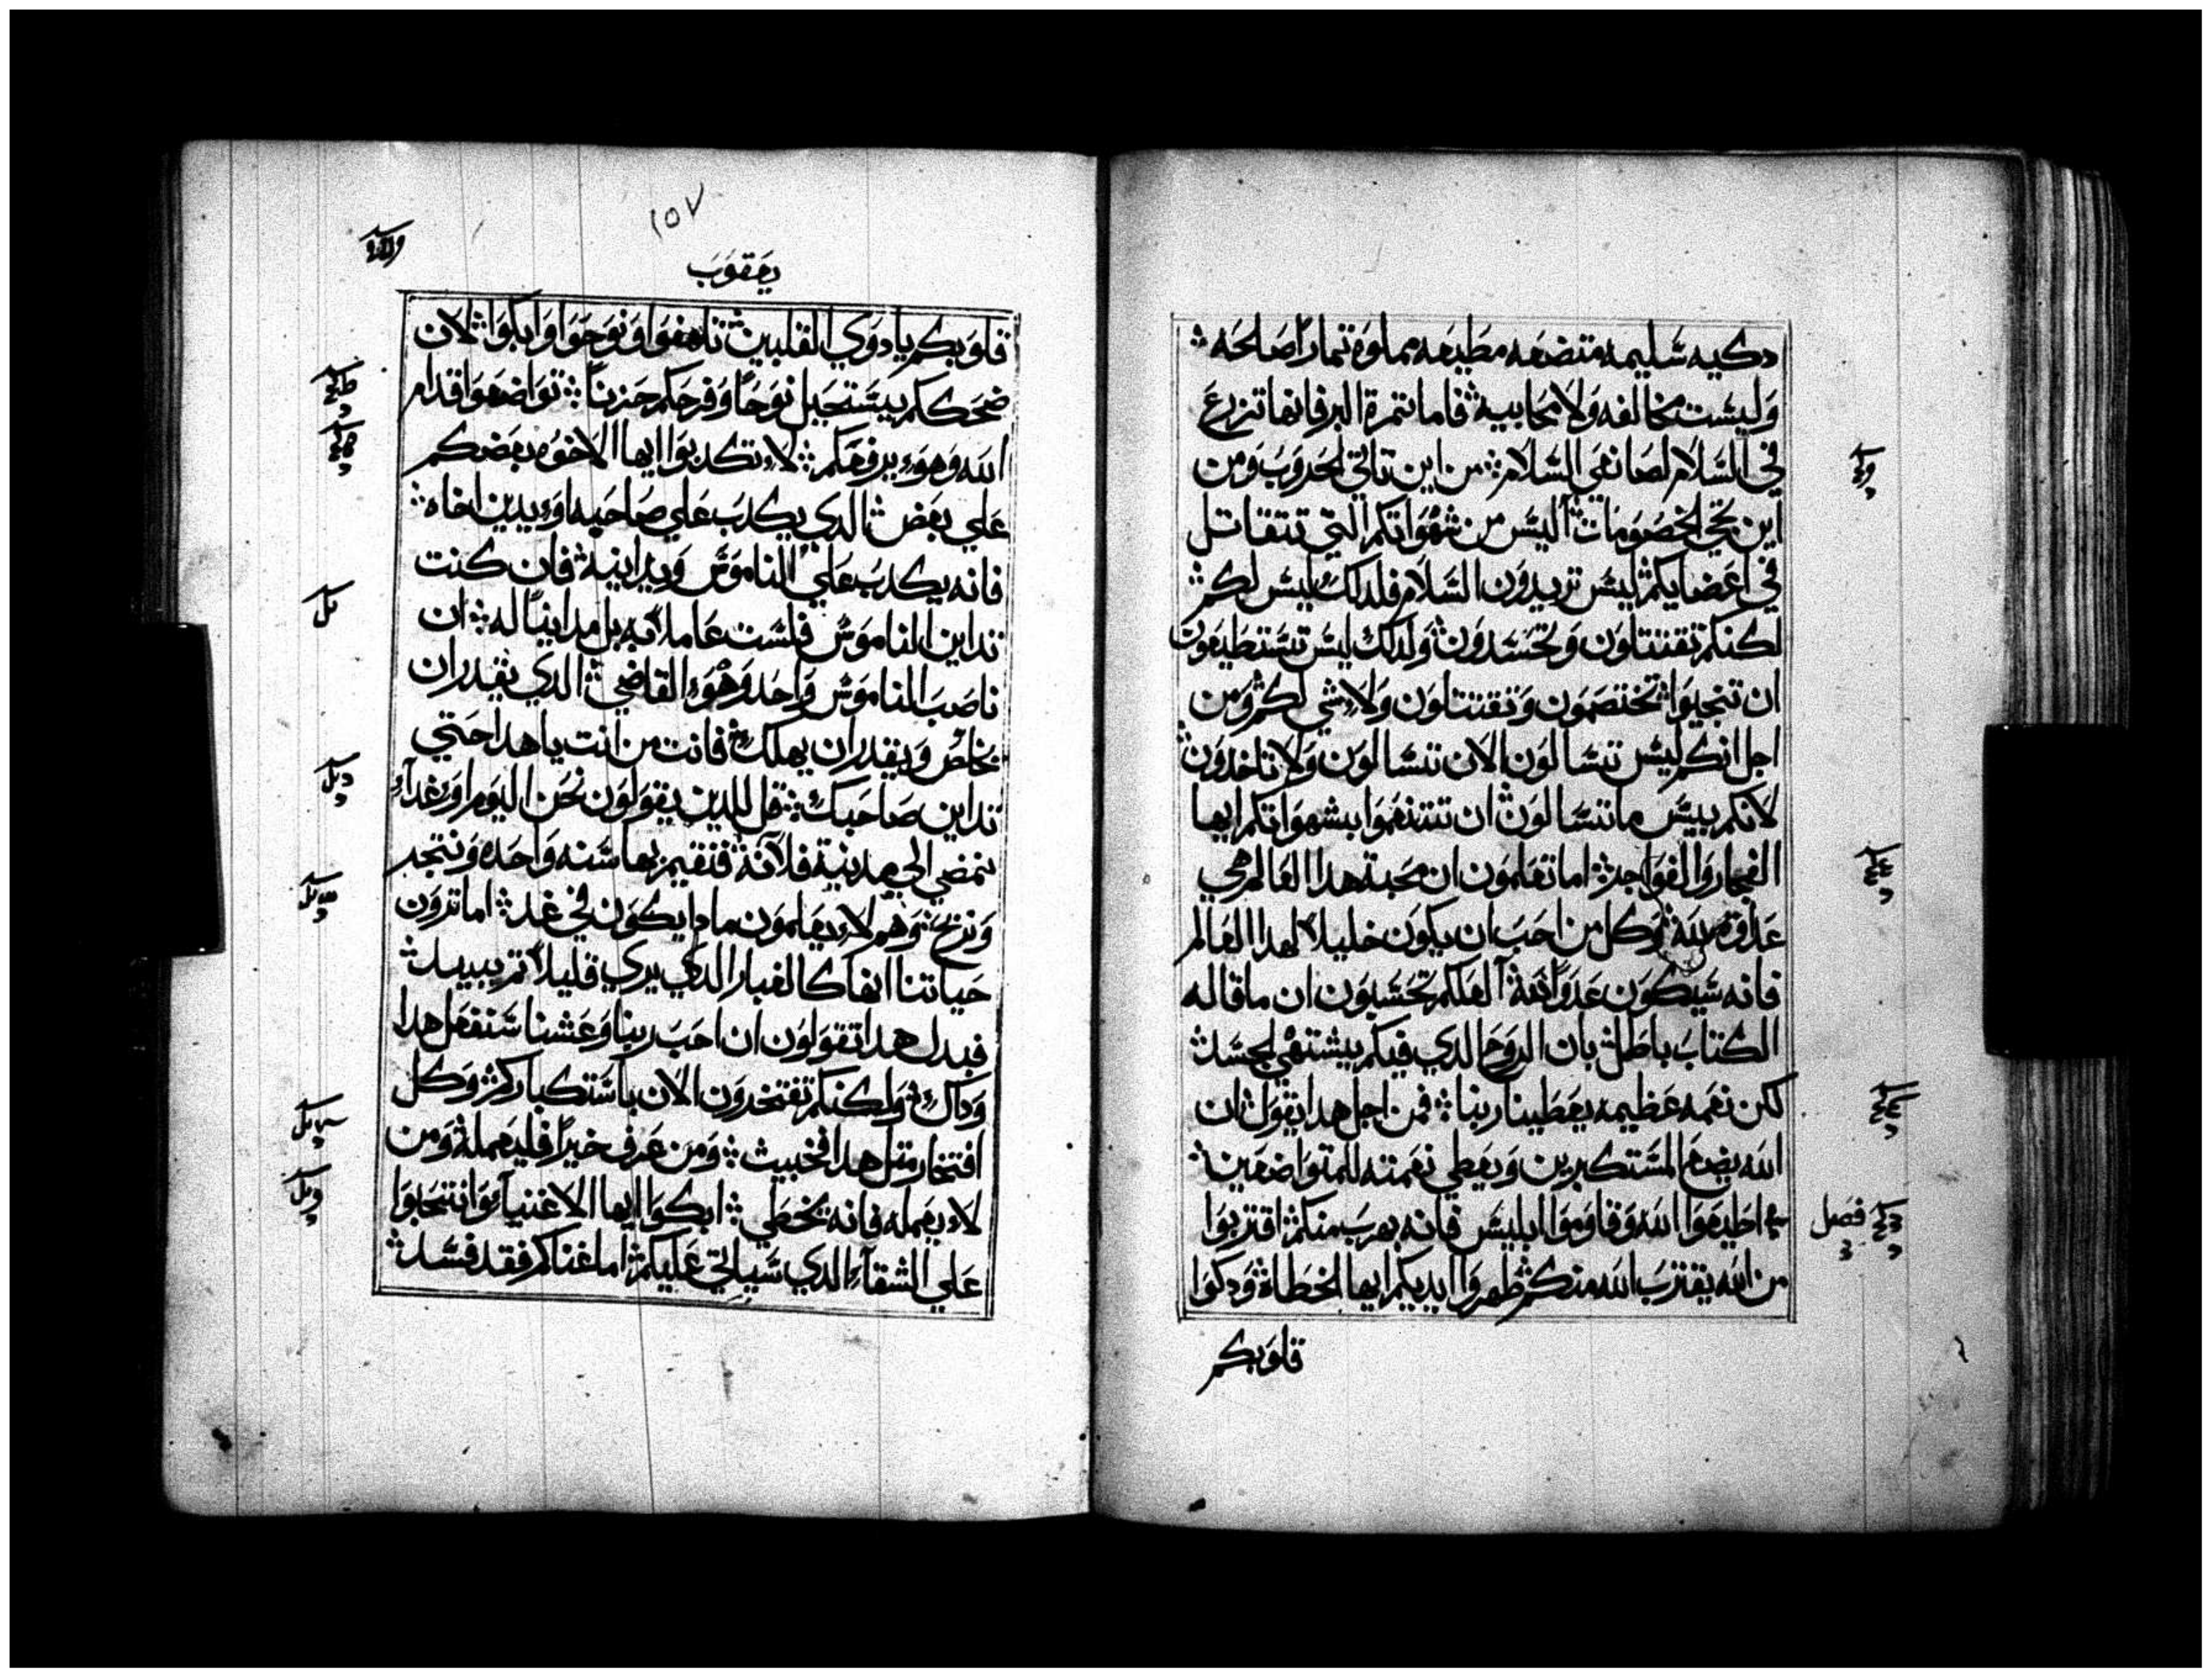 دكيه سليمه متضعه مطيعه مملوه تمارًا صالحه
وليست مخالفه ولا محابيه فاما تمرة البر فانها تزرع
في السلام لصانعي السلام من اين تاتي الحروب ومن
اين تجي الخصومات اليس من شهواتكم التي تتقاتل
في اعضايكم ليس تريدون السلام فلدلك ليس لكم
لكنكم تقتتلون وتحسدون ولدلك ليس تستطيعون
ان تنجبوا تختصمون وتقتتلون ولا شي لكم ومن
اجل انكم ليس تتسالون الان تتسالون ولا تاخدون
لانكم بيس ما تتسالون ان تتنعموا بشهواتكم ايها
الفجار والفواجر اما تعلمون ان محبة هدا العالم هي
عداوة الله وكل من احب ان يكون خليلاً لهدا العالم
فانه سيكون عدوًا لله العلكم تحسبون ان ما قاله
الكتاب باطل بان الروح الدي فيكم يشتهي الحسد
لكن نعمه عظيمه يعطينا ربنا فمن اجل هدا يقول ان
الله يضع المستكبرين ويعطي نعمته للمتواضعين
اطيعوا الله وقاوموا ابليس فانه يهرب منكم اقتربوا
من الله يقترب الله منكم طهروا ايديكم ايها الخطاة ودكوا
قلوبكم
فصل
١٥٧
يعقوب
قلوبكم يا دوي القلبين تاهفوا ونوحوا وابكوا لان
ضحككم يستحيل نوحًا وفرحكم حزنًا تواضعوا قدام
الله وهو يرفعكم لا تكدبوا ايها الاخوه بعضكم
علي بعض الدي يكدب علي صاحبه او يدين اخاه
فانه يكدب علي الناموس ويداينه فان كنت
تداين الناموس فلست عاملاً به بل مداينًا له ان
ناصب الناموس واحد وهو القاضي الدي يقدر ان
يخلص ويقدر ان يهلك فانت من انت يا هدا حتي
تداين صاحبك قل للدين يقولون نحن اليوم او غدآء
نمضي الي مدينة فلانة فنقيم بها سنه واحده ونتجر
ونربح وهم لا يعلمون مادا يكون في غد اما ترون
حياتنا انها كالغبار الدي يري قليلاً تم يبيد
فبدل هدا تقولون ان احب ربنا وعشنا سنفعل هدا
وداك ولكنكم تفتخرون الان باستكباركم وكل
افتخار متل هدا فخبيث ومن عرف خيرًا فليعمله ومن
لا يعمله فانه يخطي ابكوا ايها الاغنيآء وانتحبوا
علي الشقآء الدي سياتي عليكم اما غناكم فقد فسد